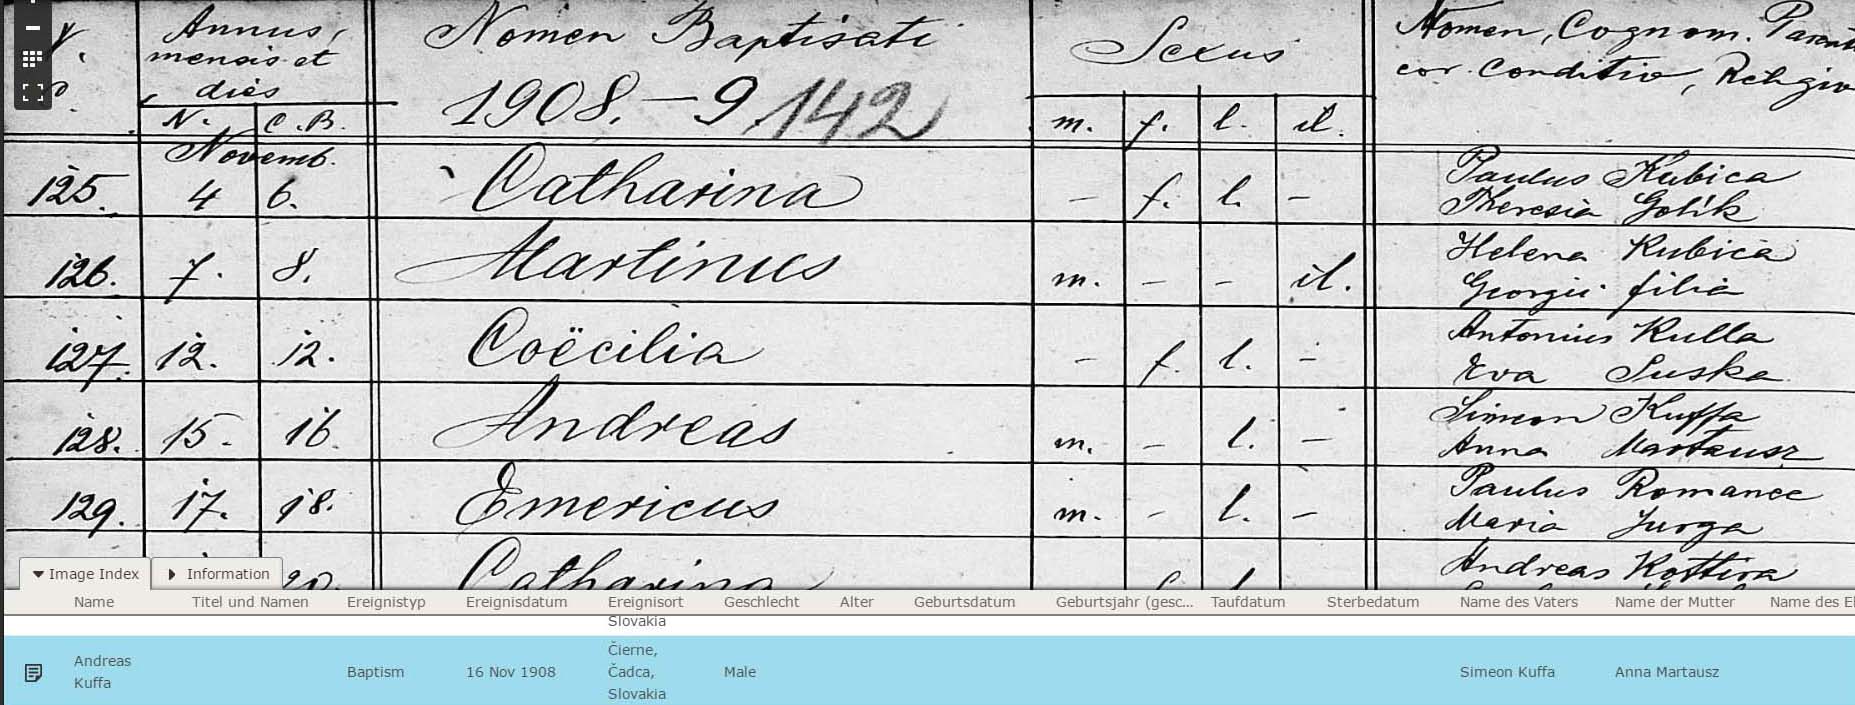 Annus,
mensis et
dies
N. C.B.
Nomen Baptisati
1908. — 9. 142
Sexus
m. f. l. il.
Nomen, Cognom. Parent
cor. Conditio, Religio
Novemb.
125. 4 6. Catharina – f. l. – Paulus Kubica
Theresia Golík
126. 7. 8. Martinus m. – – il. Helena Kubica
Georgii filia
127. 12. 12. Coëcilia – f. l. – Antonius Kulla
Eva Suska
128. 15. 16. Andreas m. – l. – Simeon Kuffa
Anna Martausz
129. 17. 18. Emericus m. – l. – Paulus Romanec
Maria Jurga
20. Catharina f. l. Andreas
Image Index Information
Name Titel und Namen Ereignistyp Ereignisdatum Ereignisort Geschlecht Alter Geburtsdatum Geburtsjahr (gesc... Taufdatum Sterbedatum Name des Vaters Name der Mutter Name des E
Slovakia
Andreas
Kuffa
Baptism
16 Nov 1908
Čierne,
Čadca,
Slovakia
Male
Simeon Kuffa
Anna Martausz